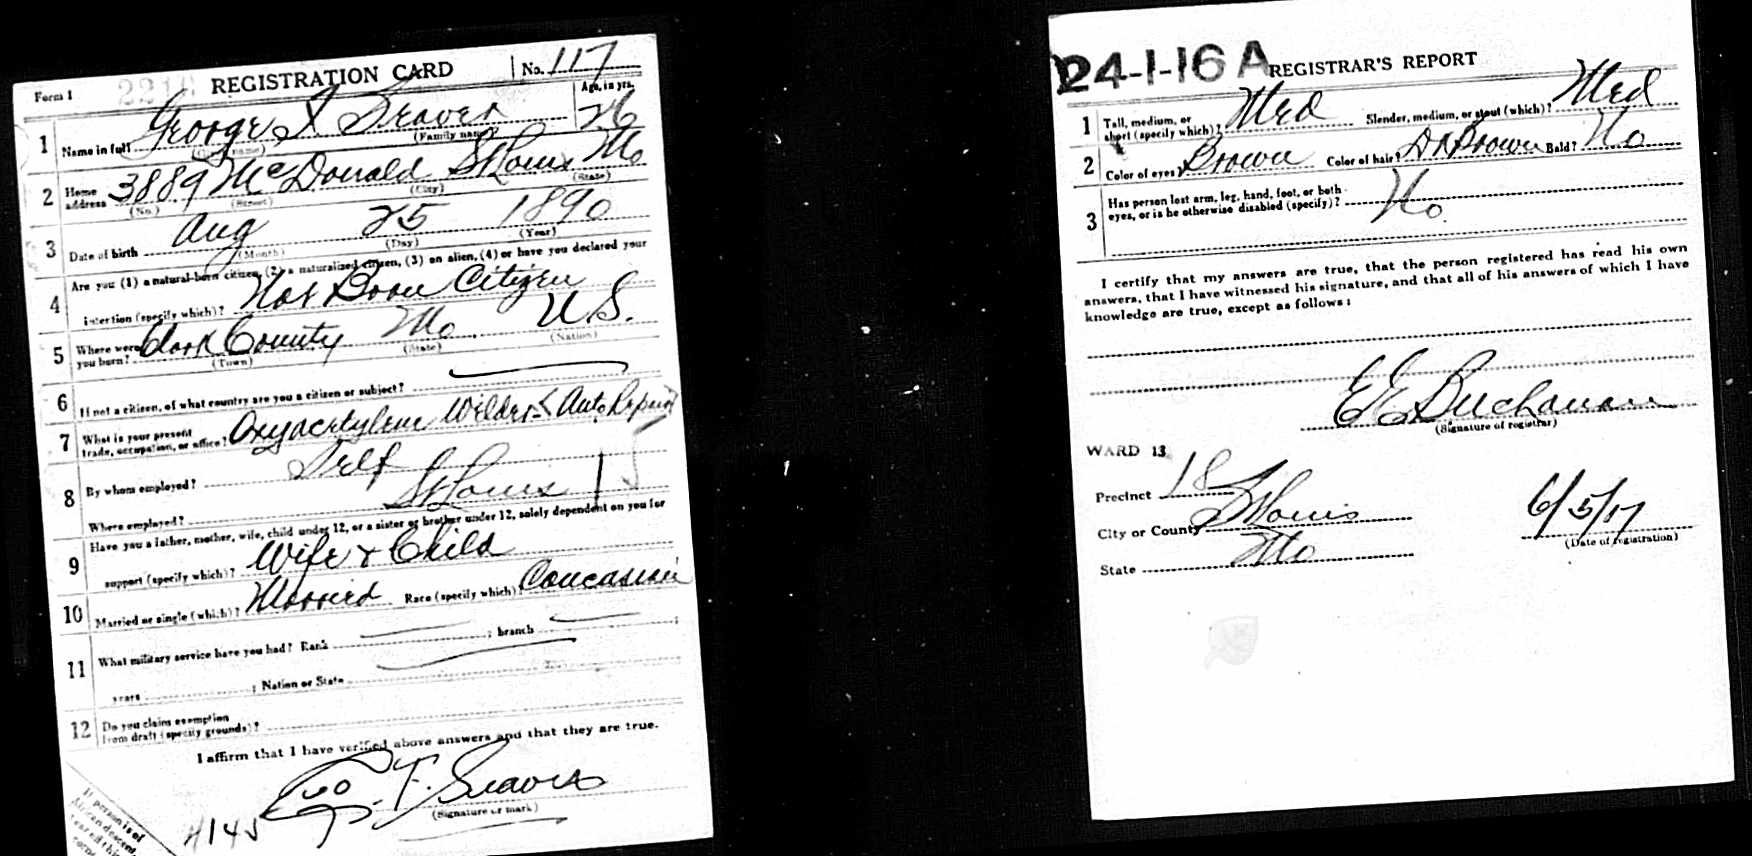 Form 1 221 REGISTRATION CARD No. 117
1 Name in full George F Seaver Age, in yrs. 26
(Given name) (Family name)
2 Home address 3889 McDonald St Louis Mo
(No.) (Street) (City) (State)
3 Date of birth Aug 25 1890
(Month) (Day) (Year)
4 Are you (1) a natural-born citizen, (2) a naturalized citizen, (3) an alien, (4) or have you declared your
intention (specify which)? Nat Born Citizen
5 Where were you born? Clark County Mo, U.S.
(Town) (State) (Nation)
6 If not a citizen, of what country are you a citizen or subject?
7 What is your present
trade, occupation, or office? Oxyacetylene Welder & Auto Repair
8 By whom employed? Self
Where employed? St Louis
9 Have you a father, mother, wife, child under 12, or a sister or brother under 12, solely dependent on you for
support (specify which)? Wife & Child
10 Married or single (which)? Married Race (specify which)? Caucasian
11 What military service have you had? Rank ; branch ;
years ; Nation or State
12 Do you claim exemption
from draft (specify grounds)?
I affirm that I have verified above answers and that they are true.
Geo. F. Seaver
(Signature or mark)
If person is of
African descent,
tear off this
corner
24-1-16 A REGISTRAR'S REPORT
1 Tall, medium, or
short (specify which)? Med Slender, medium, or stout (which)? Med
2 Color of eyes Brown Color of hair? Dk Brown Bald? No
3 Has person lost arm, leg, hand, foot, or both
eyes, or is he otherwise disabled (specify)? No
I certify that my answers are true, that the person registered has read his own
answers, that I have witnessed his signature, and that all of his answers of which I have
knowledge are true, except as follows:
E E Buchanan
(Signature of registrar)
WARD 13
Precinct 18
City or County St Louis 6/5/17
State Mo (Date of registration)